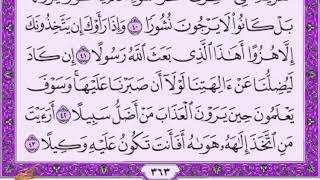 بَلْ كَانُوا۟ لَا يَرْجُونَ نُشُورًا ٤٠ وَإِذَا رَأَوْكَ إِن يَتَّخِذُونَكَ
إِلَّا هُزُوًا أَهَٰذَا ٱلَّذِى بَعَثَ ٱللَّهُ رَسُولًا ٤١ إِن كَادَ
لَيُضِلُّنَا عَنْ ءَالِهَتِنَا لَوْلَآ أَن صَبَرْنَا عَلَيْهَا ۚ وَسَوْفَ
يَعْلَمُونَ حِينَ يَرَوْنَ ٱلْعَذَابَ مَنْ أَضَلُّ سَبِيلًا ٤٢ أَرَءَيْتَ
مَنِ ٱتَّخَذَ إِلَٰهَهُۥ هَوَىٰهُ أَفَأَنتَ تَكُونُ عَلَيْهِ وَكِيلًا ٤٣
٣٦٣